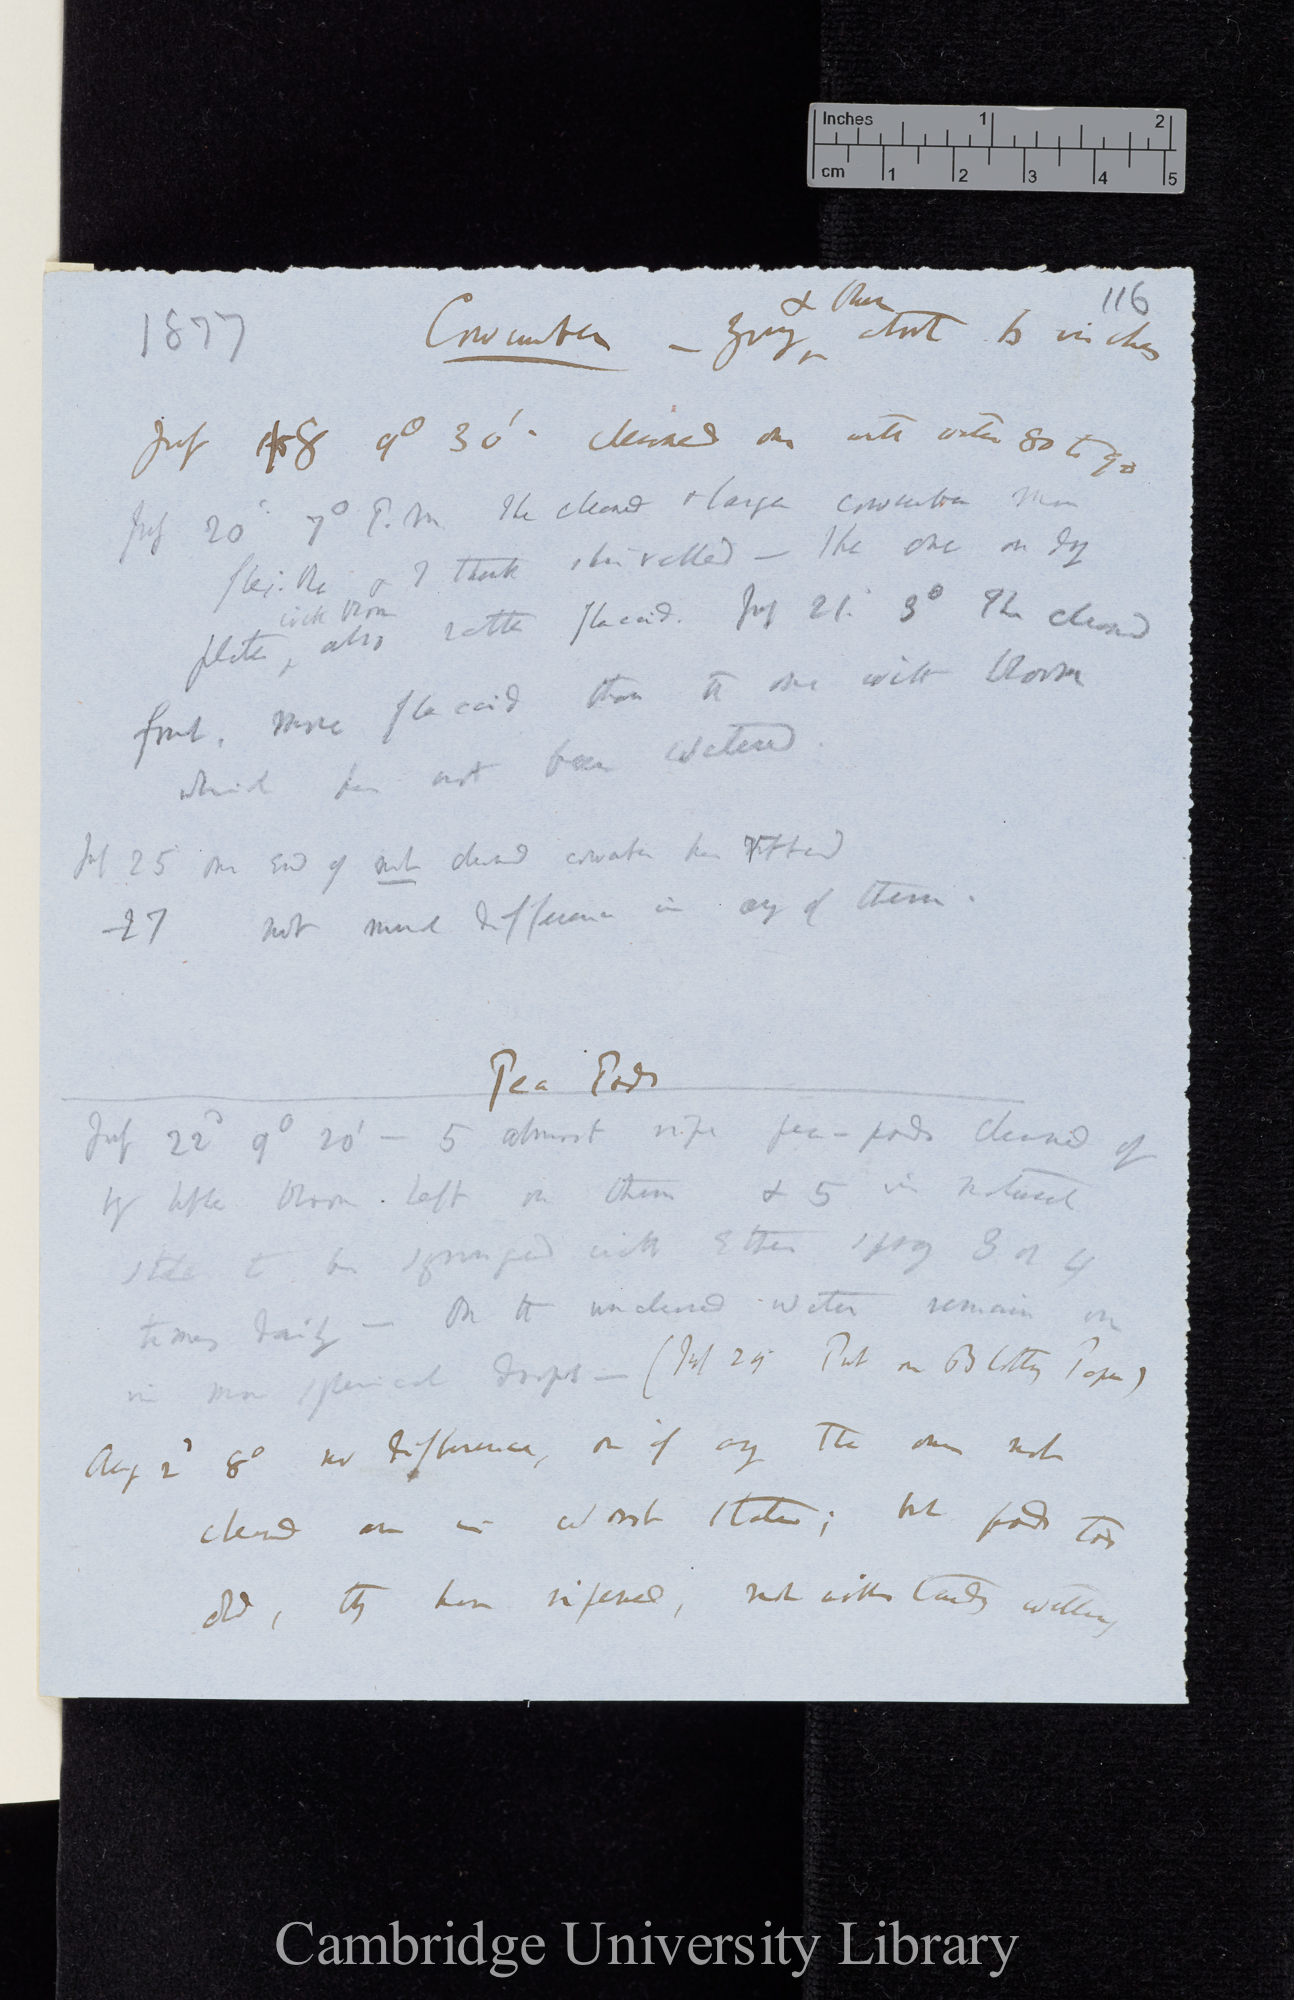 Inches 1 2
cm 1 2 3 4 5
116
1877
& then
Cowcumber — young about 6 inches
July 18 9° 30' cleaned one with water 80 to 90
July 20' 7° P.M. The cleaned & larger cowcumber more
flexible & I think shrivelled — The one on dry
with bloom
plate, also rather flaccid. July 21. 3° The cleaned
fruit, more flaccid than the one with bloom
which has not been watered.
July 25 one end of not cleaned cowcumber has rotted
—27 not much difference in any of them.
Pea Pods
July 22° 9° 20' — 5 almost ripe pea-pods cleaned of
little bloom left on them & 5 in natural
state to be syringed with spray 3 or 4
times daily — On the uncleaned water remain on
in more spherical drops — (July 29 Put on Blotting Paper)
Aug 2° 8° no difference, or if any the ones not
cleaned are in worst state; but pods too
old, they have ripened, notwithstanding wetting
Cambridge University Library